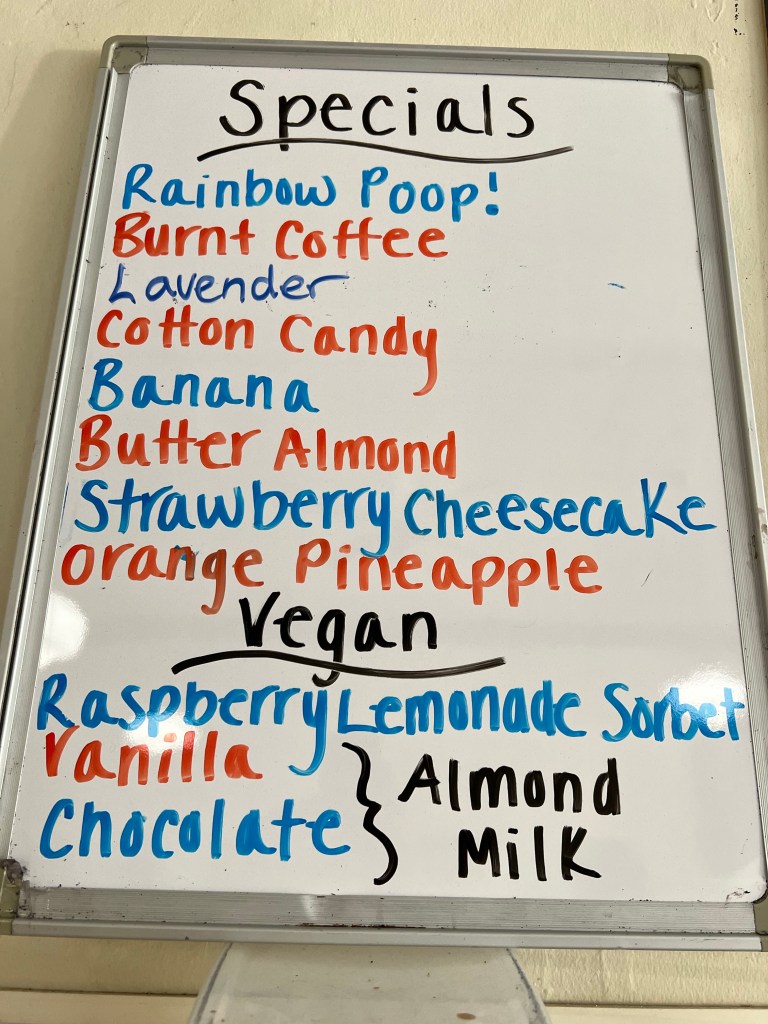 Specials
Rainbow Poop!
Burnt Coffee
Lavender
Cotton Candy
Banana
Butter Almond
Strawberry Cheesecake
Orange Pineapple
Vegan
Raspberry Lemonade Sorbet
Vanilla
Chocolate
Almond
Milk